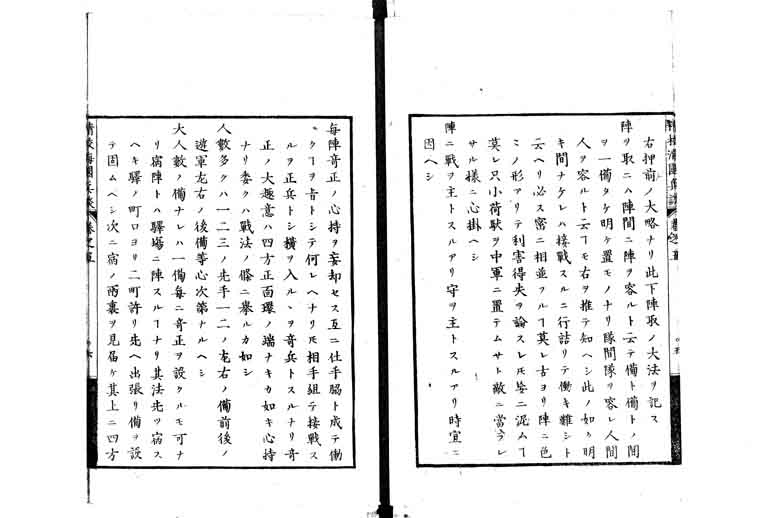 右押前ノ大略ナリ此下陣取ノ大法ヲ記ス
陣ヲ取ニハ陣間ニ陣ヲ容ルト云テ備ト備トノ間
ヲ一備タケ明ケ置モノナリ隊間隊ヲ容レ人間
人ヲ容ルト云ヿモ右ヲ推テ知ヘシ此ノ如ク明
キ間ナケレハ接戦スルニ行詰リテ働キ難シト
云ヘリ必ス密ニ相並フルヿ莫レ古ヨリ陣ニ色
ミノ形アリテ利害得失ヲ論スレ𪜈必ニ泥ムヿ
莫レ只小荷駄ヲ中軍ニ置テムサト敵ニ當ラレ
サル様ニ心掛ヘシ
陣ニ戰ヲ主トスルアリ守ヲ主トスルアリ時宜ニ
因ヘシ
精校海國兵談 巻之五
毎陣竒正ノ心持ヲ妄却セス互ニ仕手脇ト成テ働
クヿヲ旨トシテ何レヘナリ𪜈相手組テ接戦ス
ルヲ正兵トシ横ヲ入ルヽヲ竒兵トスルナリ竒
正ノ大趣意ハ四方正面環ノ端ナキカ如キ心持
ナリ委クハ戦法ノ條ニ擧ルカ如シ
人數多クハ一二三ノ先手一二ノ左右ノ備前後ノ
遊軍左右ノ後備等心次第タルヘシ
大人數ノ備ナレハ一備毎ニ竒正ヲ設クルモ可ナ
リ宿陣トハ驛場ニ陣スルヿナリ其法先ツ宿ス
ヘキ驛ノ町口ヨリ二町許リ先ヘ出張リ備ヲ設
テ固ムヘシ次ニ宿ノ両裏ヲ見届ケ其上ニ四方
精校海國兵談 巻之五